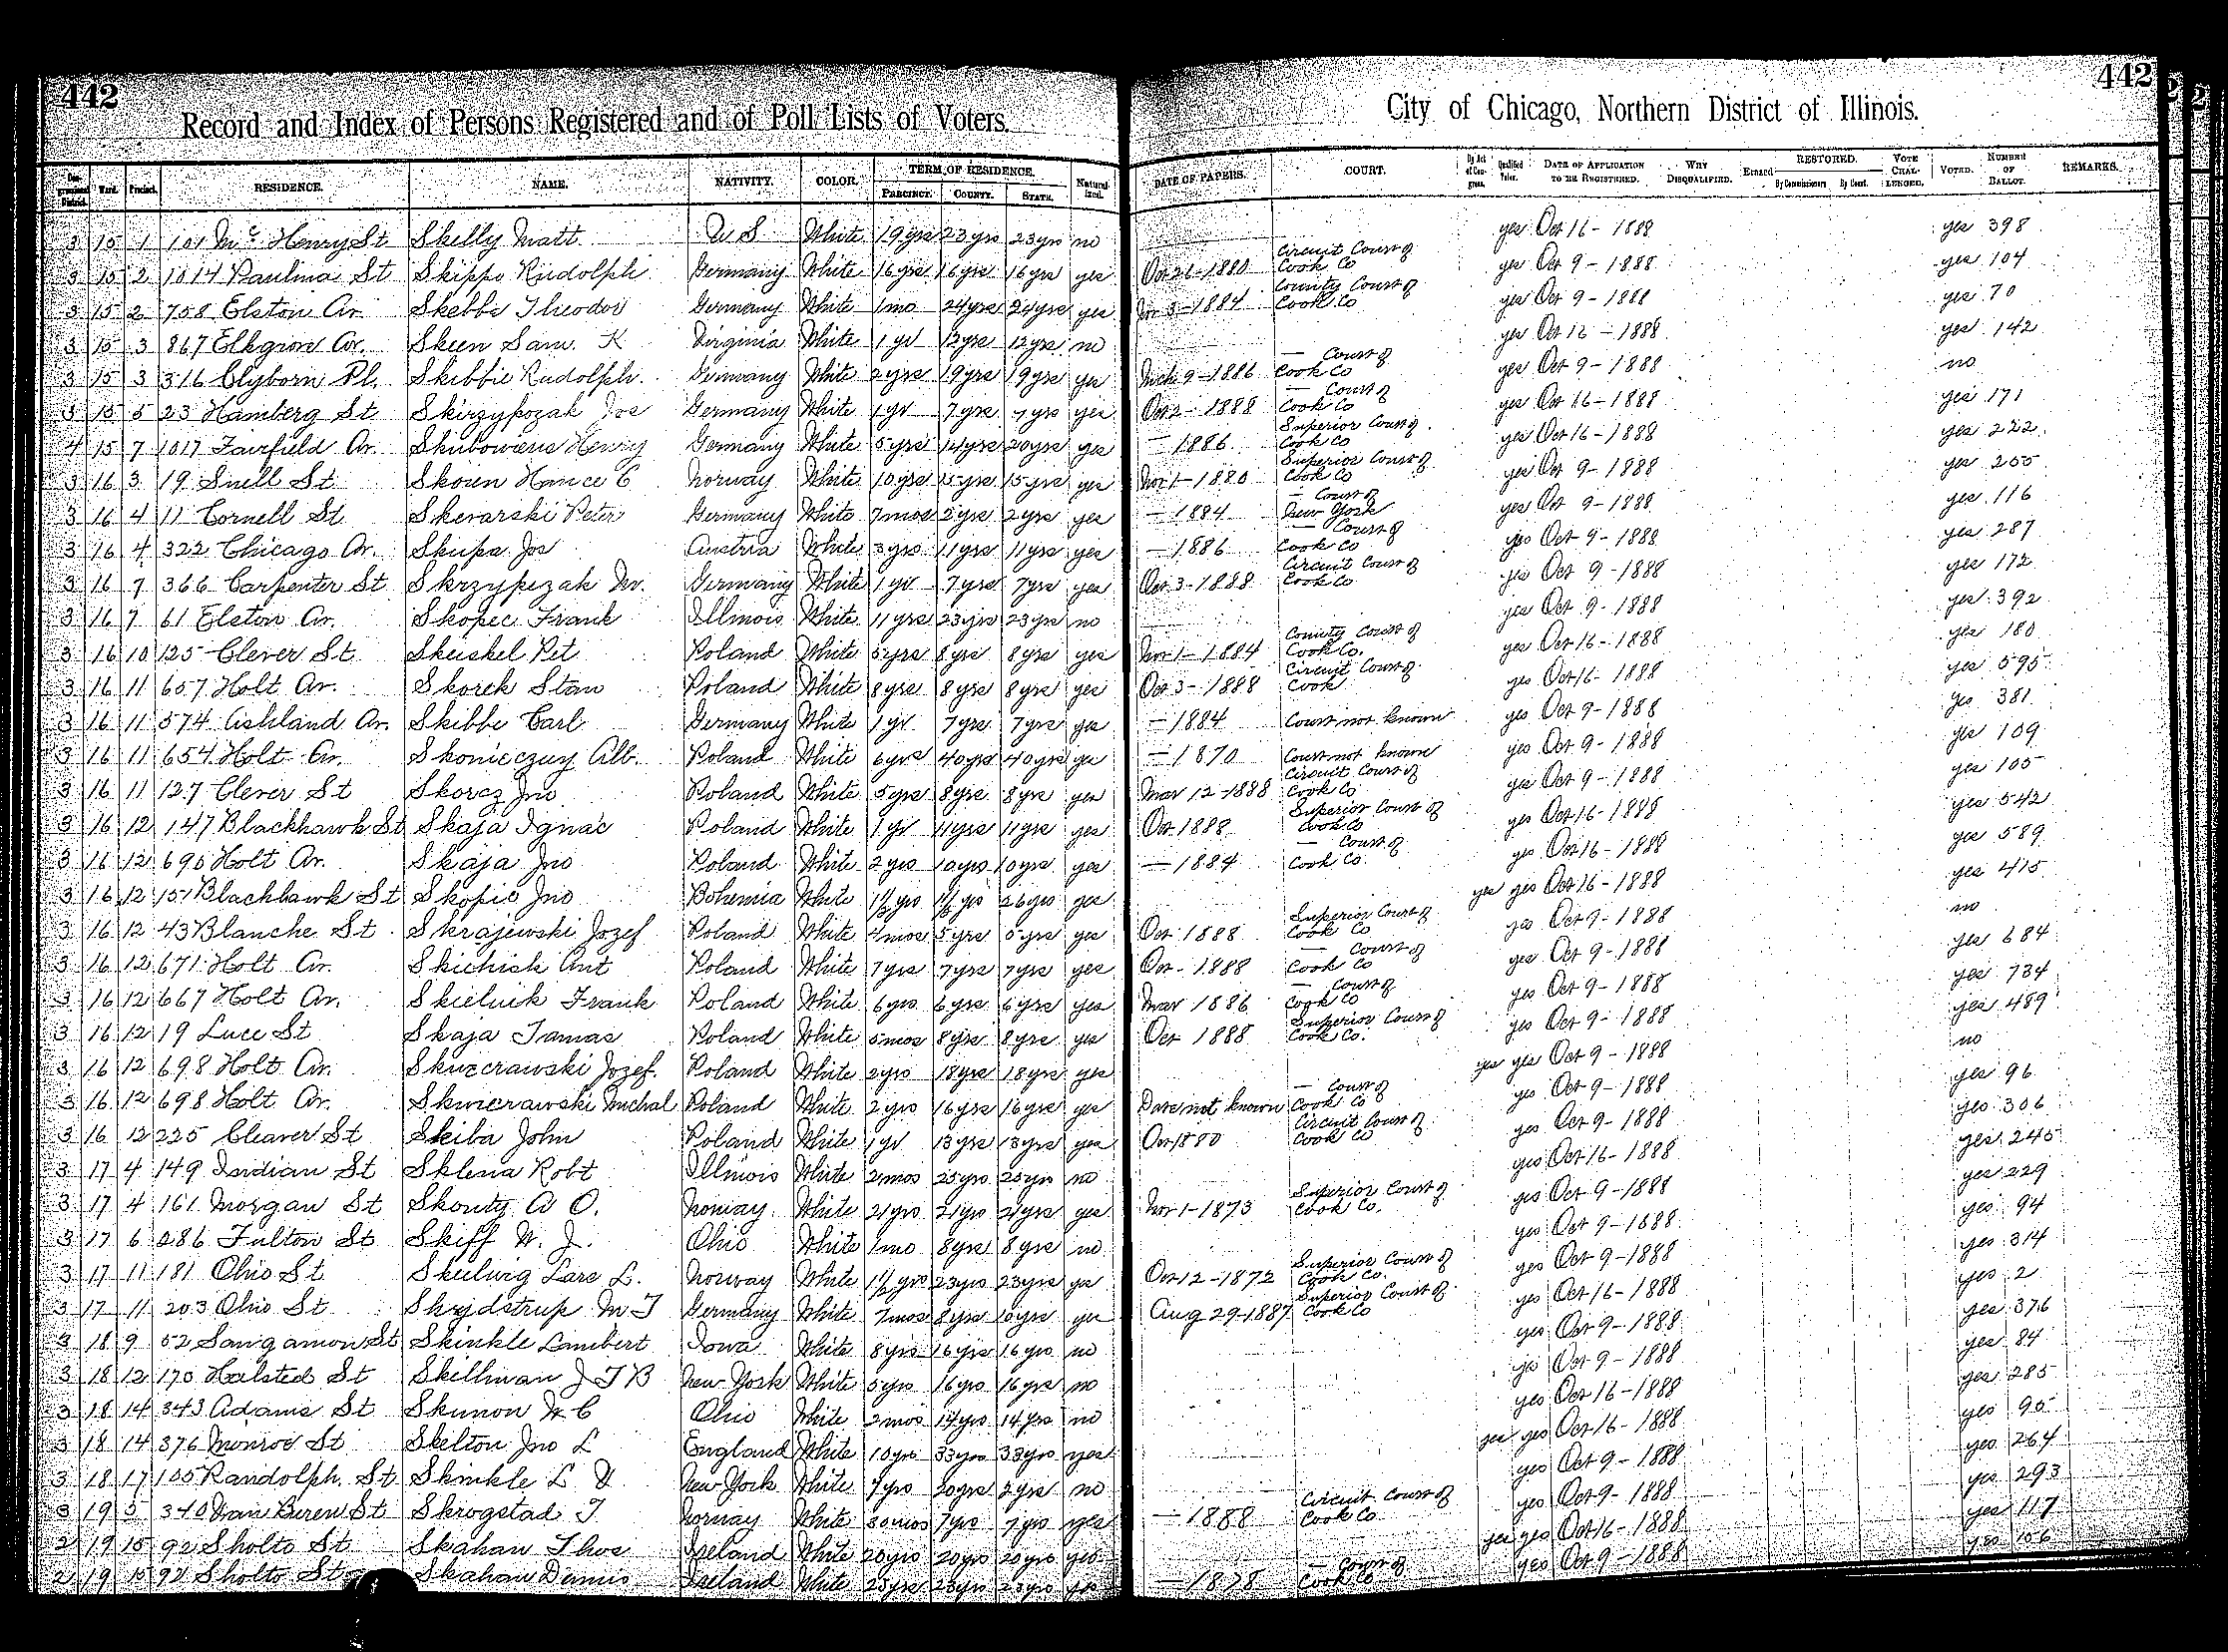 442
442
Record and Index of Persons Registered and of Poll Lists of Voters.
City of Chicago, Northern District of Illinois.
Congressional District. Ward. Precinct. RESIDENCE. NAME. NATIVITY. COLOR. TERM OF RESIDENCE. PRECINCT. COUNTY. STATE. Naturalized. DATE OF PAPERS. COURT. By Act of Congress. Qualified Voter. DATE OF APPLICATION TO BE REGISTERED. WHY DISQUALIFIED. Erased RESTORED. By Commissioners By Court. VOTE CHALLENGED. VOTED. NUMBER OF BALLOT. REMARKS.
3 15 1 101 Mc Henry St Skelly Matt U S White 19 yrs 23 yrs 23 yrs no yes Oct 16 - 1888 yes 398
3 15 2 1014 Paulina St Skippo Rudolph Germany White 16 yrs 16 yrs 16 yrs yes Oct 26-1880 Circuit Court of Cook Co yes Oct 9 - 1888 yes 104
3 15 2 758 Elston Av. Skebbe Theodor Germany White 1 mo 24 yrs 24 yrs yes Nov 3-1884 County Court of Cook Co yes Oct 9 - 1888 yes 70
3 15 3 867 Elkgrove Av. Skeen Sam. K Virginia White 1 yr 12 yrs 12 yrs no yes Oct 16 - 1888 yes 142
3 15 3 316 Clyborn Pl. Skibbie Rudolph Germany White 2 yrs 19 yrs 19 yrs yes Mch 9-1886 — Court of Cook Co yes Oct 9 - 1888 no
3 15 5 23 Hamberg St Skirzypozak Jos Germany White 1 yr 7 yrs 7 yrs yes Oct 2 - 1888 — Court of Cook Co yes Oct 16 - 1888 yes 171
4 15 7 1017 Fairfield Av. Henry Germany White 5 yrs 14 yrs 20 yrs yes — 1886 Superior Court of Cook Co yes Oct 16 - 1888 yes 222
3 16 3 19 Snell St Skoen Hance C Norway White 10 yrs 15 yrs 15 yrs yes Nov 1-1880 Superior Court of Cook Co yes Oct 9 - 1888 yes 255
3 16 4 11 Cornell St Skerarski Peter Germany White 7 mos 2 yrs 2 yrs yes — 1884 — Court of New York yes Oct 9 - 1888 yes 116
3 16 4 322 Chicago Av. Skupa Jos Austria White 3 yrs 11 yrs 11 yrs yes — 1886 — Court of Cook Co yes Oct 9 - 1888 yes 287
3 16 7 366 Carpenter St Skrzypczak Germany White 1 yr 7 yrs 7 yrs yes Oct 3 - 1888 Circuit Court of Cook Co yes Oct 9 - 1888 yes 172
3 16 7 61 Elston Av. Skopec Frank Illinois White 11 yrs 23 yrs 23 yrs no yes Oct 9 - 1888 yes 392
3 16 10 125 Clever St Skuskel Pet Poland White 5 yrs 8 yrs 8 yrs yes Nov 1 - 1884 County Court of Cook Co. yes Oct 16 - 1888 yes 180
3 16 11 657 Holt Av. Skorek Stan Poland White 8 yrs 8 yrs 8 yrs yes Oct 3 - 1888 Circuit Court of Cook yes Oct 16 - 1888 yes 595
3 16 11 574 Ashland Av. Skibbe Carl Germany White 1 yr 7 yrs 7 yrs yes — 1884 Court not known yes Oct 9 - 1888 yes 381
3 16 11 654 Holt Av. Skonieczny Alb. Poland White 6 yrs 40 yrs 40 yrs yes — 1870 Court not known yes Oct 9 - 1888 yes 109
3 16 11 127 Clever St Skorcz Jno Poland White 5 yrs 8 yrs 8 yrs yes Mar 12-1888 Circuit Court of Cook Co yes Oct 9 - 1888 yes 105
3 16 12 147 Blackhawk St Skaja Ignac Poland White 1 yr 11 yrs 11 yrs yes Oct 1888 Superior Court of Cook Co yes Oct 16 - 1888 yes 542
3 16 12 690 Holt Av. Skaja Jno Poland White 2 yrs 10 yrs 10 yrs yes — 1884 — Court of Cook Co yes Oct 16 - 1888 yes 589
3 16 12 151 Blackhawk St Skopic Jno Bohemia White 1½ yrs 1½ yrs 26 yrs yes yes yes Oct 16 - 1888 yes 415
3 16 12 43 Blanche St Skrajewski Jozef Poland White 4 mos 5 yrs 5 yrs yes Oct 1888 Superior Court of Cook Co yes Oct 9 - 1888 no
3 16 12 671 Holt Av. Skichick Ant Poland White 7 yrs 7 yrs 7 yrs yes Oct - 1888 — Court of Cook Co yes Oct 9 - 1888 yes 684
3 16 12 667 Holt Av. Skielnik Frank Poland White 6 yrs 6 yrs 6 yrs yes Mar 1886 — Court of Cook Co yes Oct 9 - 1888 yes 734
3 16 12 19 Luce St Skaja Tamas Poland White 5 mos 8 yrs 8 yrs yes Oct 1888 Superior Court of Cook Co. yes Oct 9 - 1888 yes 489
3 16 12 698 Holt Av. Skwcrawski Jozef. Poland White 2 yrs 18 yrs 18 yrs yes yes yes Oct 9 - 1888 no
3 16 12 698 Holt Av. Skwierawski Michal Poland White 2 yrs 16 yrs 16 yrs yes Date not known — Court of Cook Co yes Oct 9 - 1888 yes 96
3 16 12 225 Cleaver St Skiba John Poland White 1 yr 13 yrs 13 yrs yes Oct 1880 Circuit Court of Cook Co yes Oct 9 - 1888 yes 306
3 17 4 149 Indian St Sklena Robt Illinois White 2 mos 25 yrs 25 yrs no yes Oct 16 - 1888 yes 245
3 17 4 161 Morgan St Skontz A O. Norway White 21 yrs 21 yrs 21 yrs yes Nov 1-1873 Superior Court of Cook Co. yes Oct 9 - 1888 yes 229
3 17 6 286 Fulton St Skiff W. J. Ohio White 1 mo 8 yrs 8 yrs no yes Oct 9 - 1888 yes 94
3 17 11 181 Ohio St Skulwig Lars L. Norway White 1½ yrs 23 yrs 23 yrs yes Oct 12-1872 Superior Court of Cook Co. yes Oct 9 - 1888 yes 314
3 17 11 203 Ohio St Skydstrup M T Germany White 7 mos 8 yrs 10 yrs yes Aug 29-1887 Superior Court of Cook Co yes Oct 16 - 1888 yes 2
3 18 9 52 Sangamon St Skinkle Lambert Iowa White 8 yrs 16 yrs 16 yrs no yes Oct 9 - 1888 yes 376
3 18 12 170 Halsted St Skillman J T B New York White 5 yrs 16 yrs 16 yrs no yes Oct 9 - 1888 yes 84
3 18 14 343 Adams St Skunon W C Ohio White 2 mos 14 yrs 14 yrs no yes Oct 16 - 1888 yes 285
3 18 14 376 Monroe St Skelton Jno L England White 10 yrs 33 yrs 33 yrs yes yes yes Oct 16 - 1888 yes 95
3 18 17 105 Randolph St Skinkle L New York White 7 yrs 20 yrs 2 yrs no yes Oct 9 - 1888 yes 264
3 19 5 340 Van Buren St Skrogstad T Norway White 30 mos 7 yrs 7 yrs yes — 1888 Circuit Court of Cook Co yes Oct 9 - 1888 yes 293
2 19 15 92 Sholto St Skahan Thos Ireland White 20 yrs 20 yrs 20 yrs yes yes yes Oct 16 - 1888 yes 117
2 19 15 92 Sholto St Skahan Dennis Ireland White 23 yrs 23 yrs 23 yrs yes — 1878 — Court of Cook Co yes Oct 9 - 1888 yes 156